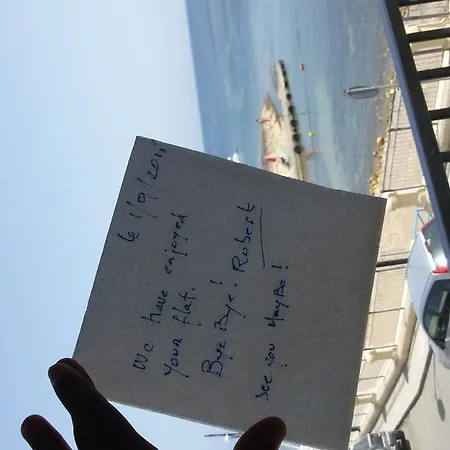 le 1/9/201
We have enjoyed
your flat.
Bye Bye!
Robert
See you MayBe!